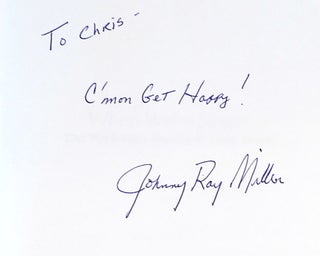 To Chris -
C'mon Get Happy!
Johnny Ray Miller